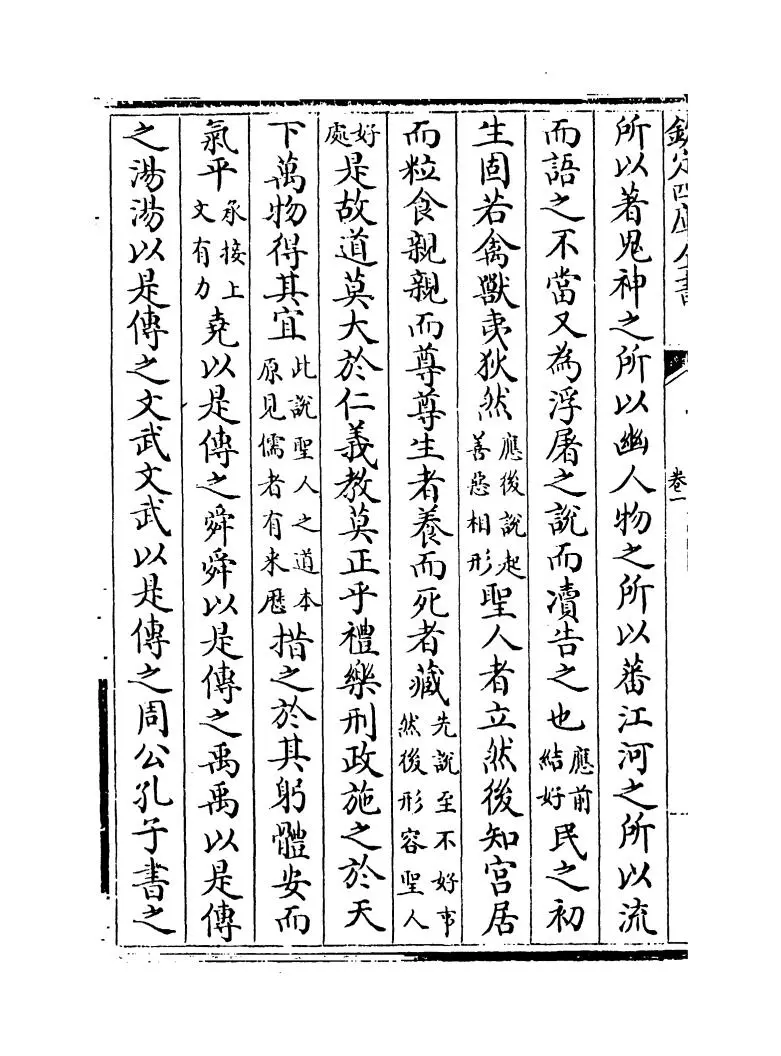 欽定四庫全書
卷一
所以著鬼神之所以幽人物之所以蕃江河之所以流
而語之不當又為浮屠之說而瀆告之也應前結好民之初
生固若禽獸夷狄然應後說起善惡相形聖人者立然後知宮居
而粒食親親而尊尊生者養而死者藏先說至不好事然後形容聖人
好處是故道莫大於仁義教莫正乎禮樂刑政施之於天
下萬物得其宜此說聖人之道本原見儒者有来歷措之於其躬體安而
氣平承接上文有力堯以是傳之舜舜以是傳之禹禹以是傳
之湯湯以是傳之文武文武以是傳之周公孔子書之